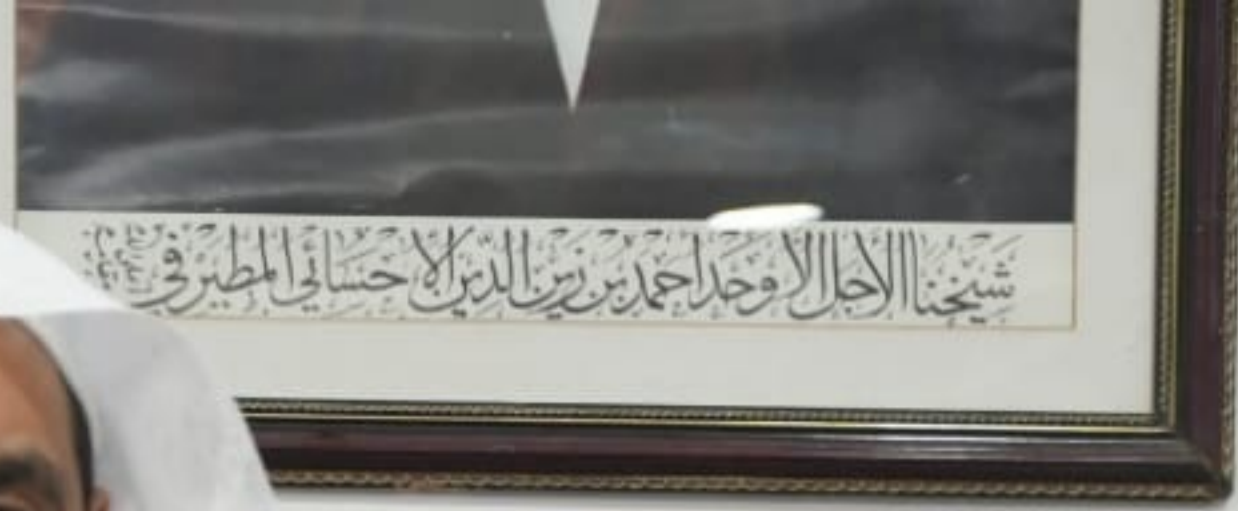 شيخنا الأجل الأوحد احمد بن زين الدين الاحسائي المطيرفي